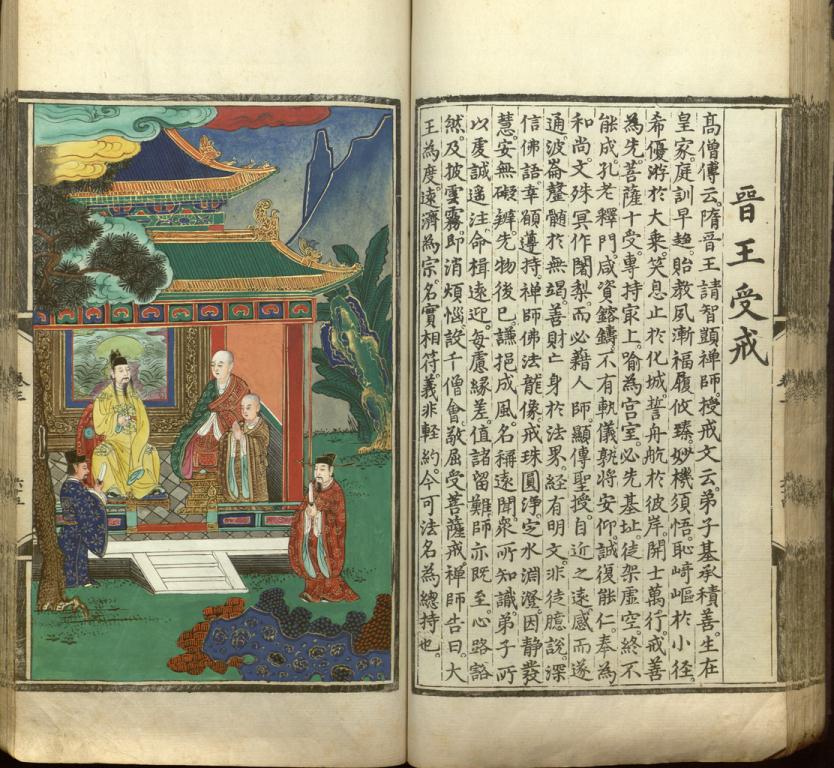 晉王受戒
高僧傳云。隋晉王請智顗禪師。授戒文云。弟子基承積善。生在
皇家。庭訓早趍。貽教夙漸。福履攸臻。妙機須悟。恥崎嶇於小徑。
希優游於大乘。笑息止於化城。誓舟航於彼岸。開士萬行。戒善
為先。菩薩十受。專持寂上。喻為宮室。必先基址。徒架虛空。終不
能成。孔老釋門。咸資鎔鑄。不有軌儀。孰將安仰。誠復能仁。奉為
和尚。文殊冥作闍梨。而必藉人師。顯傳聖授。自近之遠。感而遂
通。波崙罄髓於無竭。善財亡身於法界。經有明文。非徒臆說。深
信佛語。幸願遵持。禪師佛法龍像。戒珠圓淨。定水淵澄。因靜發
慧。安無礙辨。先物後己。謙挹成風。名稱遠聞。衆所知識。弟子所
以虔誠遙注。命楫遠迎。每慮緣差。值諸留難。師亦既至。心路豁
然。及披雲霧。即消煩惱。設千僧會。敬屈受菩薩戒。禪師告曰。大
王為度。遠濟為宗。名實相符。義非輕約。今可法名為總持也。